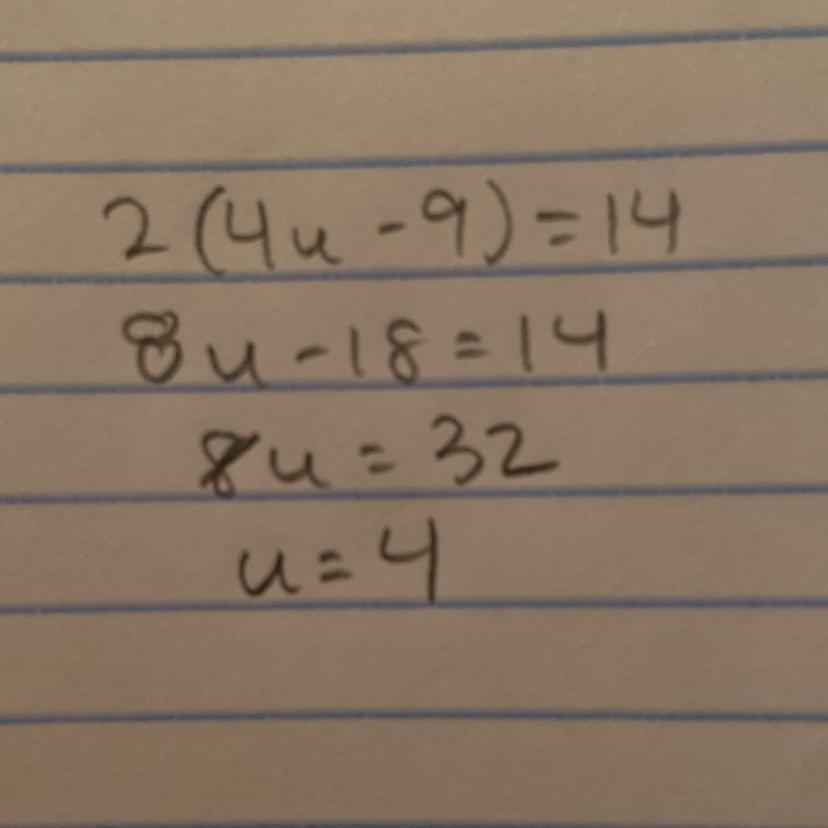 2(4u-9)=14
8u-18=14
8u=32
u=4